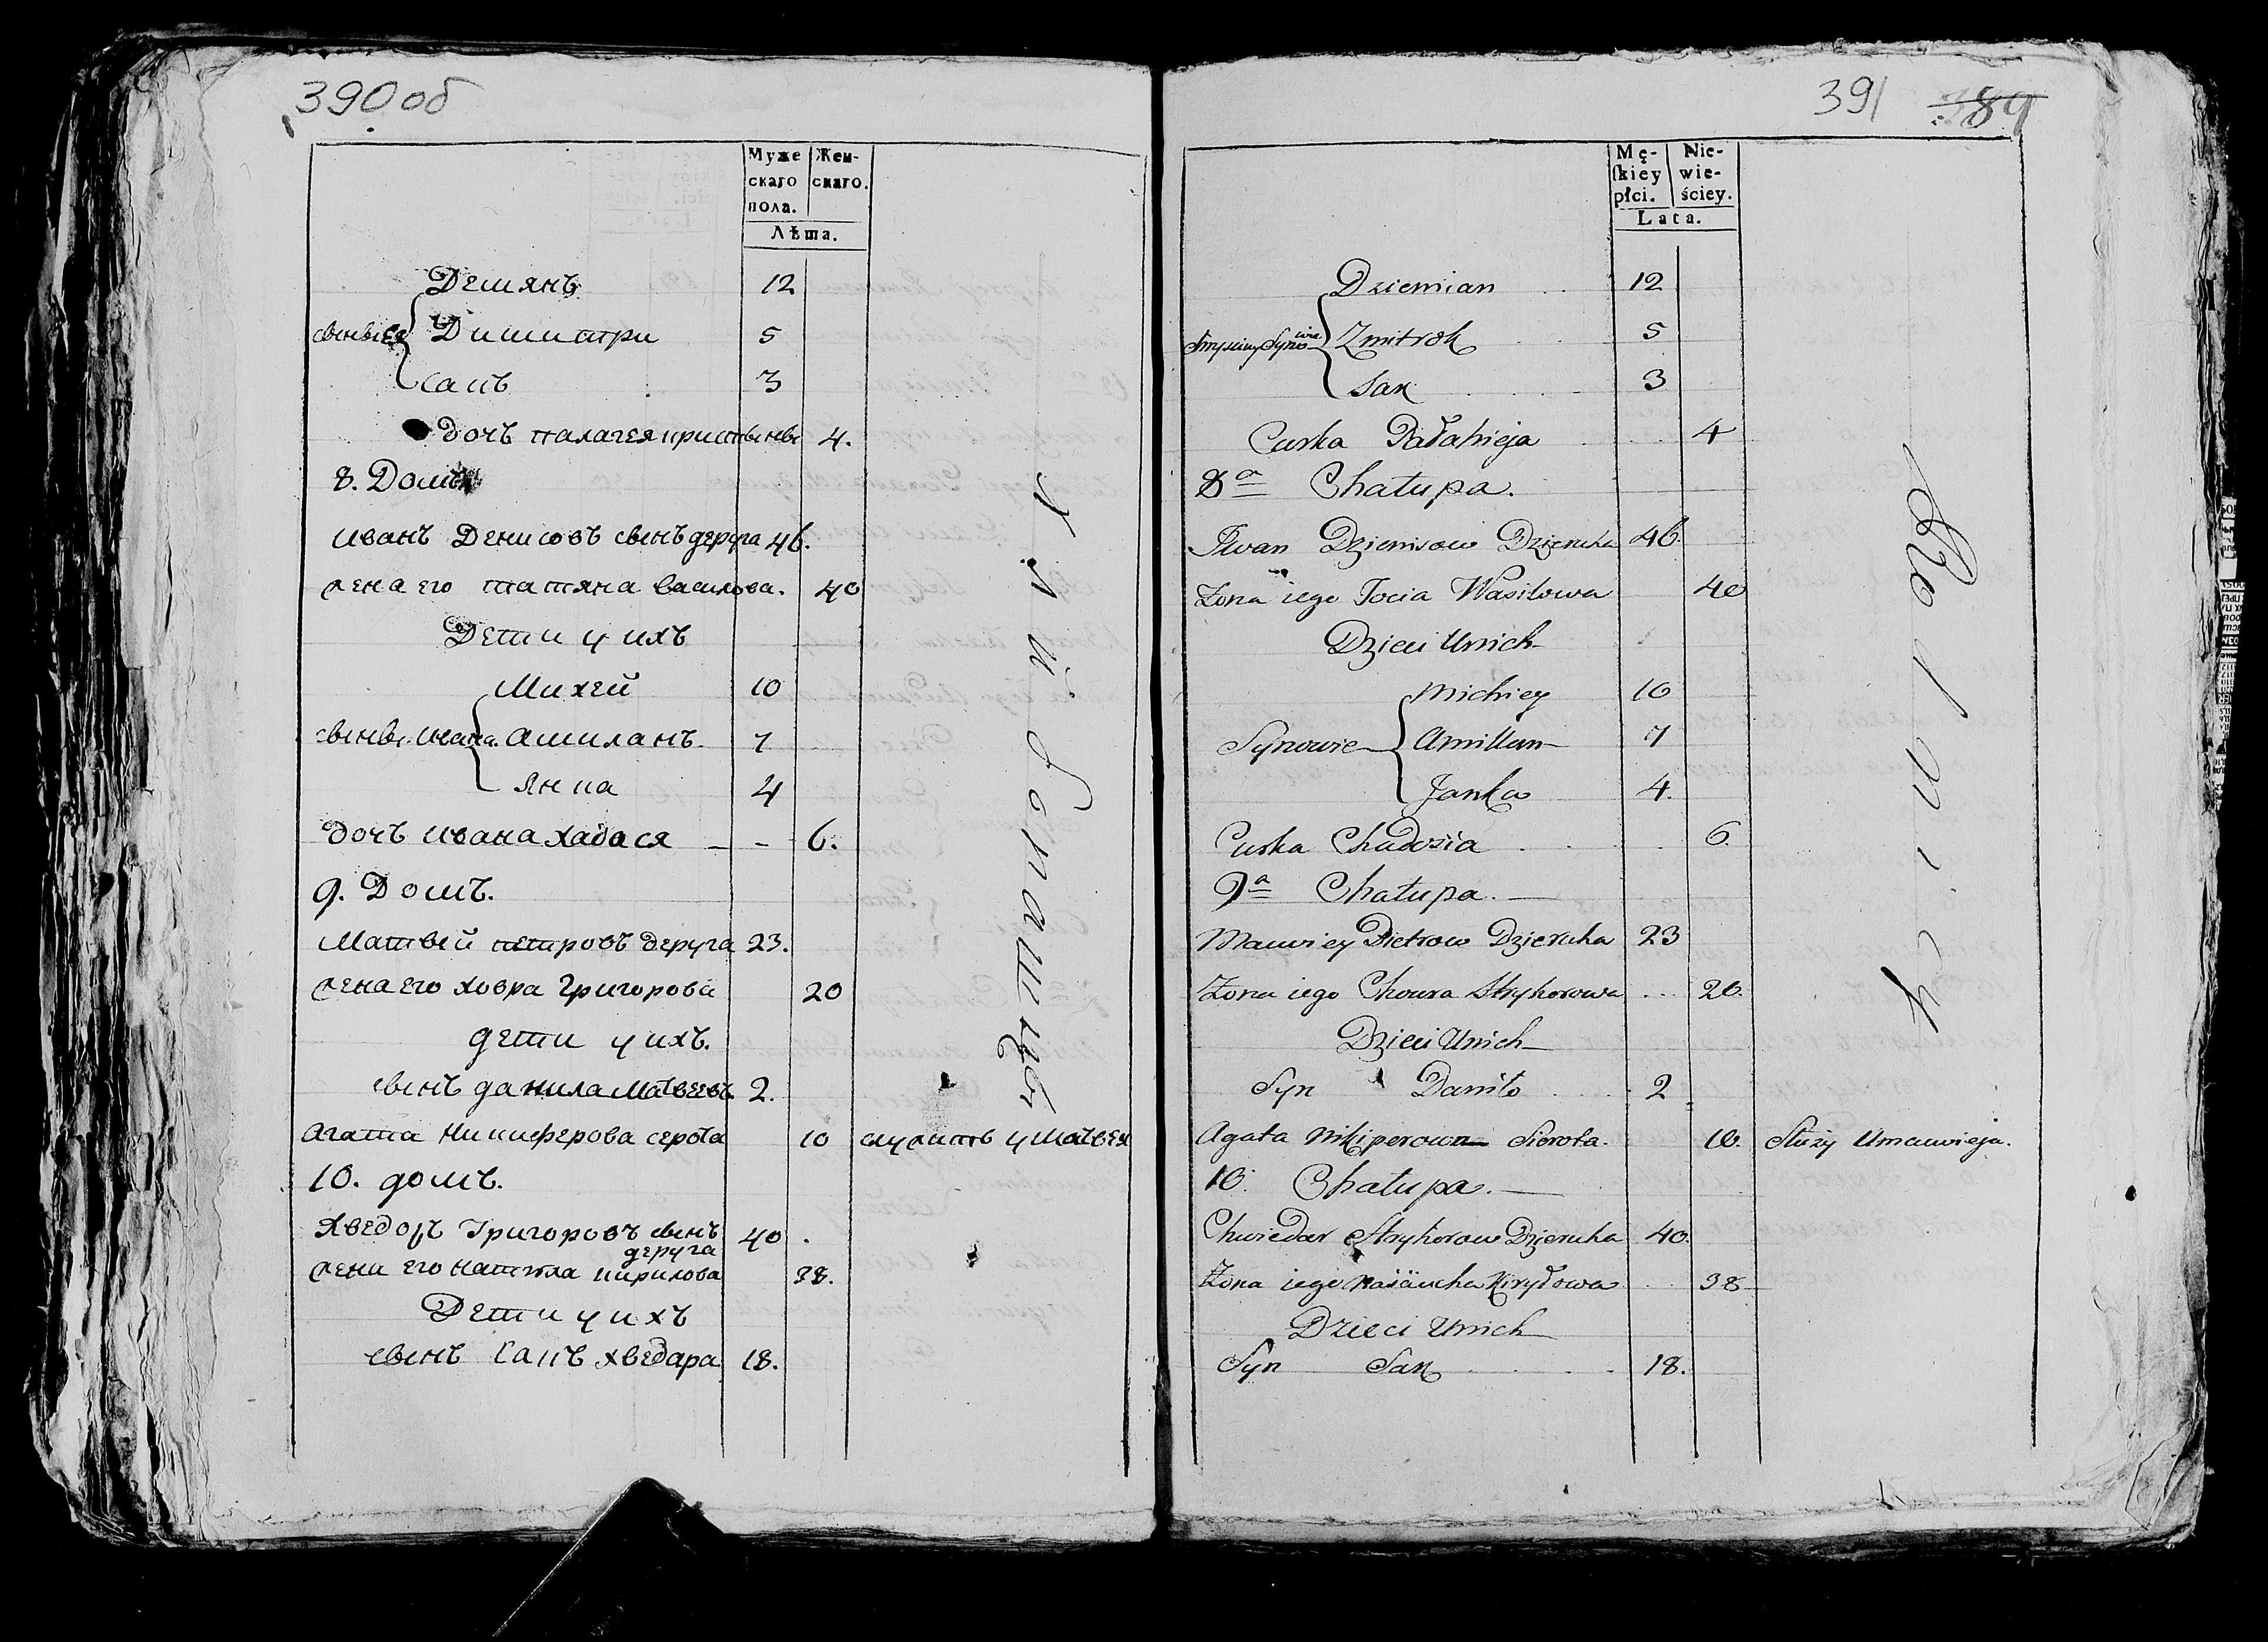 390 об
Муже
скаго
пола.
Жен-
скаго.
Лѣта.
Демянъ 12
Димитри 5
Сакъ 3
дочъ палагея 4.
8. Домъ
иванъ Денисовъ сынъ деруга 46.
жена его татяна василова. 40
Дети у ихъ
Михей 10
сыны ивана. амилянъ 7
Янка 4
дочъ ивана хадося – - 6.
9. Домъ.
Матвей петровъ деруга 23.
жена его ховра Григорова 20
дети у ихъ.
сынъ данила матвеевъ. 2.
агата никиферова серота 10 служитъ у матвея
10. домъ.
хведоръ Григоровъ сынъ
деруга 40.
жена его кирилова 38.
Дети у ихъ
сынъ Сакъ хведара 18.
391 389
Mę-
skiey
płci.
Nie-
wie-
ściey.
Lata.
Dziemian 12
Zmitrok 5
Sak 3
Curka Pałahieja 4
8a Chałupa.
Iwan Dzienisow Dzieruha 46.
Żona iego Tocia Wasilowa 40
Dzieci Unich
Michiey 10
Synowie Amillan 7
Janka 4.
Curka Chadosia 6.
9a Chałupa.
Mawiey Pietrow Dzieruha 23
Żona iego Chowra Hryhorowa 20.
Dzieci Unich
Syn Daniło 2
Agata Nikiperowa Sierota. 10. Służy Umawieja.
10. Chałupa.
Chwiedar Hryhorow Dzieruha 40.
Żona iego Kiryłowa 38
Dzieci Unich
Syn Sak 18.